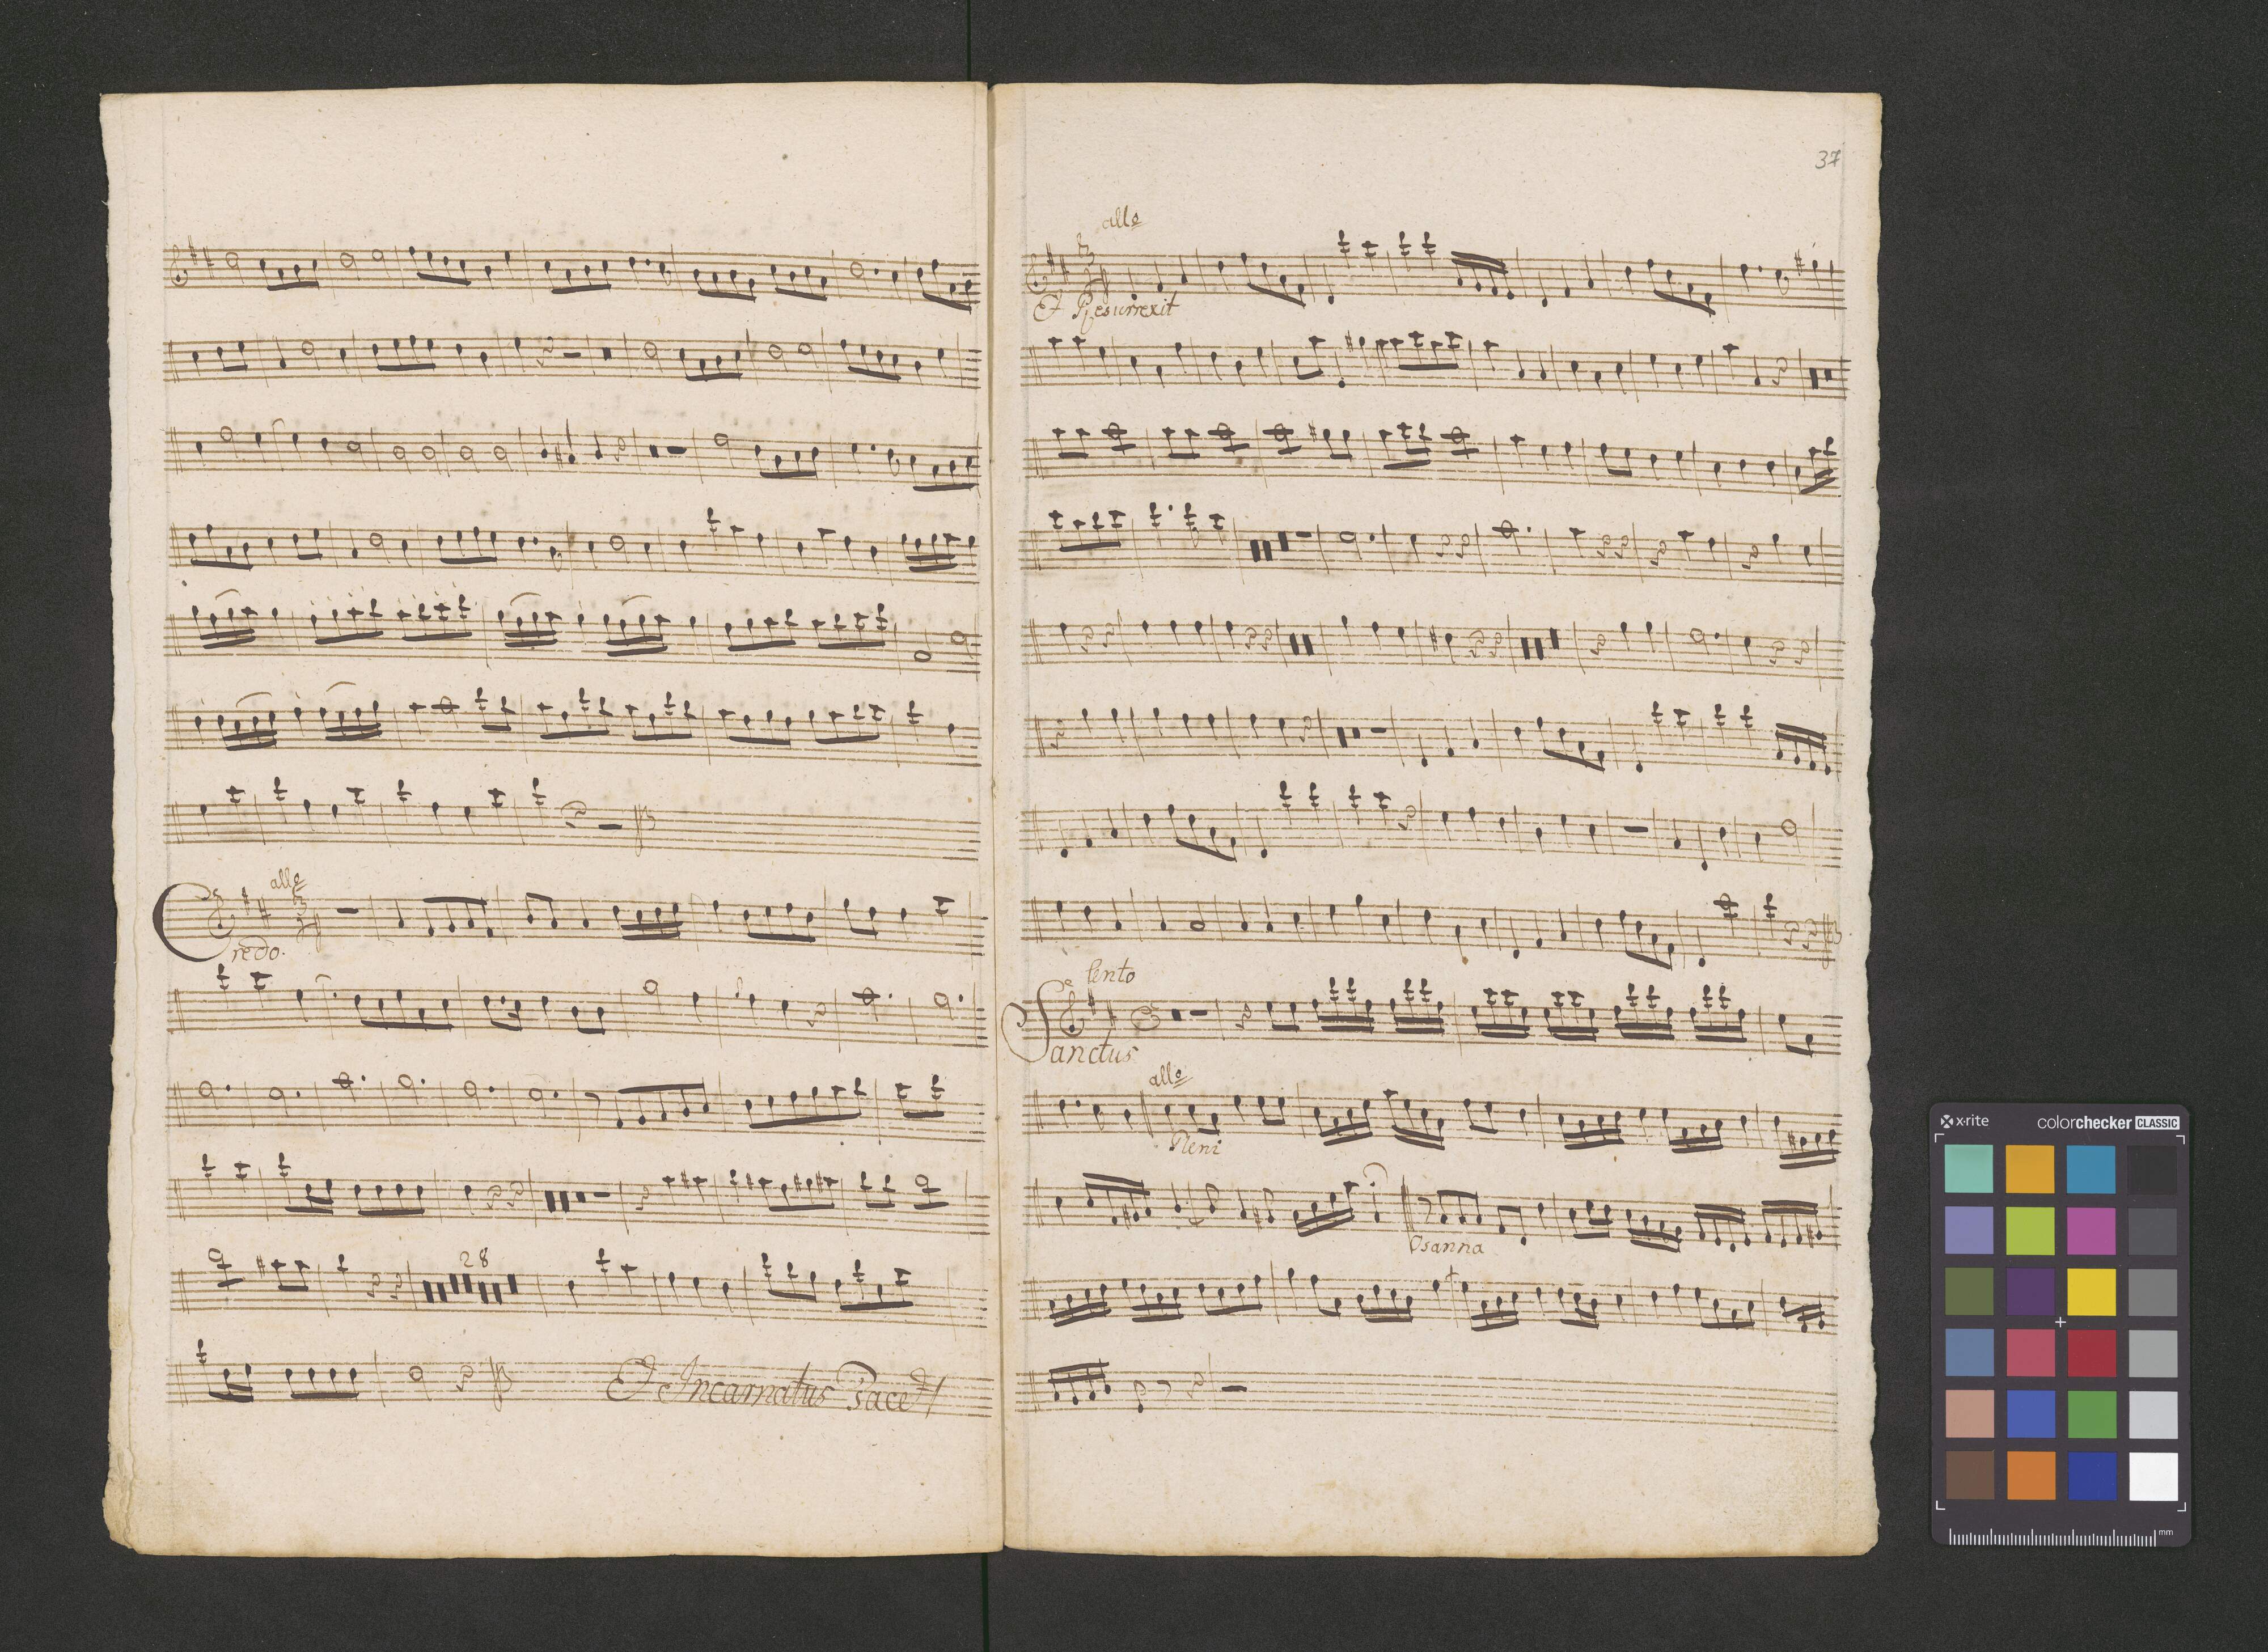 allo
Credo.
28
Et Incarnatus Tacet
37
allo
Et Resurrexit
lento
Sanctus
allo
Pleni
Osanna
x·rite
colorchecker CLASSIC
mm